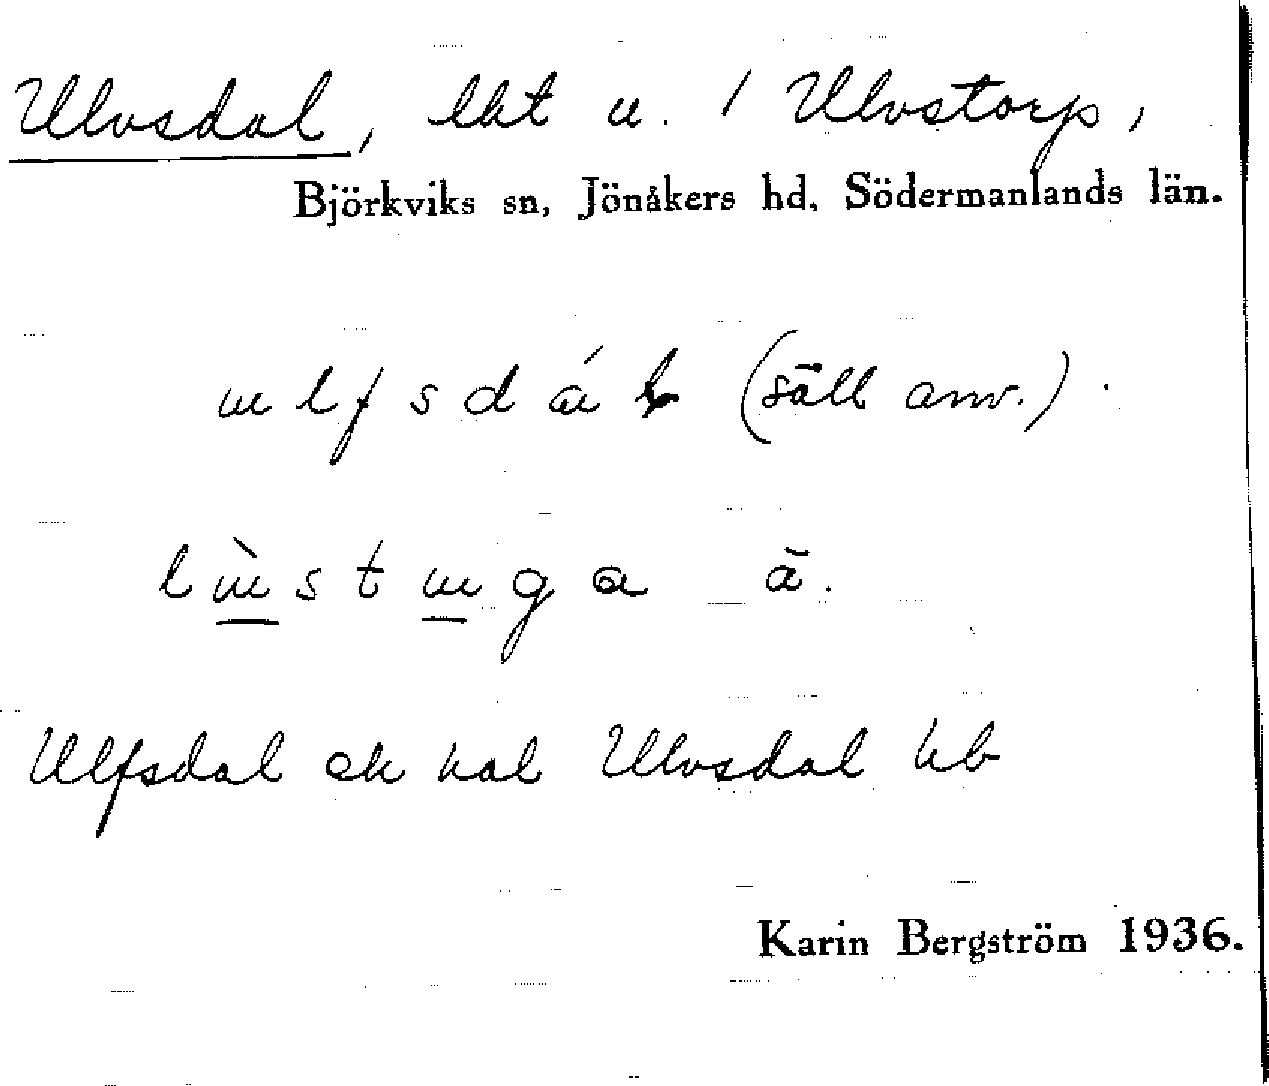 Ulvsdal, lht u. 1 Ulvstorp,
Björkviks sn, Jönåkers hd, Södermanlands län.
ulfsdál (säll anv.).
lùstuga ā.
Ulfsdal ek kal Ulvsdal hb
Karin Bergström 1936.